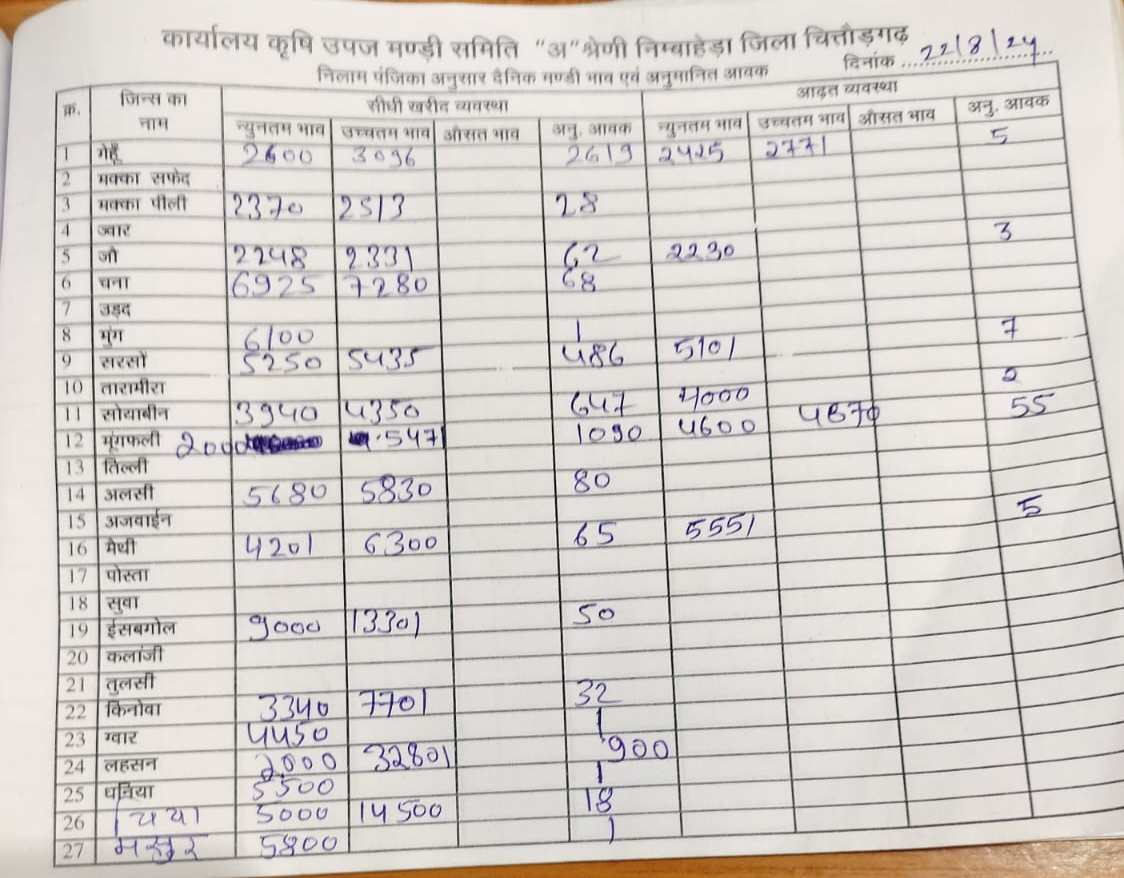 कार्यालय कृषि उपज मण्डी समिति "अ" श्रेणी निम्बाहेड़ा जिला चित्तौड़गढ़
दिनांक 22/8/24
निलाम पंजिका अनुसार दैनिक मण्डी भाव एवं अनुमानित आवक
क्र. जिन्स का नाम सीधी खरीद व्यवस्था आढ़त व्यवस्था
न्युनतम भाव उच्चतम भाव औसत भाव अनु. आवक न्युनतम भाव उच्चतम भाव औसत भाव अनु. आवक
1 गेहूँ 2600 3096 2619 2425 2771 5
2 मक्का सफेद
3 मक्का पीली 2370 2513 28
4 ज्वार
5 जौ 2248 2331 62 2230 3
6 चना 6925 7280 68
7 उड़द
8 मुंग 6100 1
9 सरसों 5250 5435 486 5101 7
10 तारामीरा
11 सोयाबीन 3940 4350 647 4000 2
12 मूंगफली 2000 5471 1090 4600 4870 55
13 तिल्ली
14 अलसी 5680 5830 80
15 अजवाईन
16 मैथी 4201 6300 65 5551 5
17 पोस्ता
18 सुवा
19 ईसबगोल 9000 13301 50
20 कलांजी
21 तुलसी
22 किनोवा 3340 7701 32
23 ग्वार 4450 1
24 लहसन 2000 32801 900
25 धनिया 5500 1
26 चिया 5000 14500 18
27 मसुर 5800 1